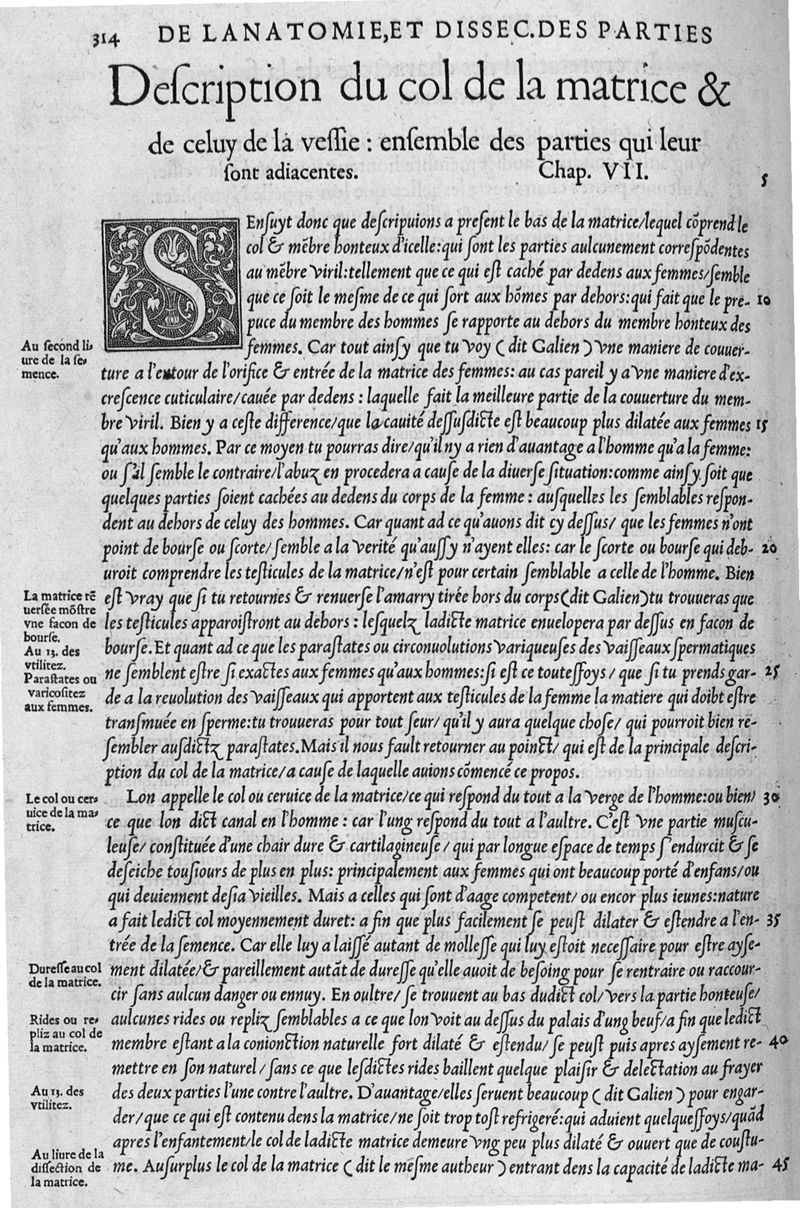 314 DE LANATOMIE, ET DISSEC. DES PARTIES
Deſcription du col de la matrice &
de celuy de la veſſie : enſemble des parties qui leur
ſont adiacentes. Chap. VII.
5
SEnſuyt donc que deſcripuions a preſent le bas de la matrice/lequel cõprend le
col & mẽbre honteux d'icelle:qui ſont les parties aulcunement correſpõdentes
au mẽbre viril:tellement que ce qui eſt caché par dedens aux femmes/ſemble
que ce ſoit le meſme de ce qui ſort aux hõmes par dehors:qui fait que le pre- 10
puce du membre des hommes ſe rapporte au dehors du membre honteux des
femmes. Car tout ainſy que tu voy (dit Galien) vne maniere de couuer-
Au ſecond li-
ure de la ſe-
mence.
ture a l'entour de l'orifice & entrée de la matrice des femmes: au cas pareil y a vne maniere d'ex-
creſcence cuticulaire/cauée par dedens : laquelle fait la meilleure partie de la couuerture du mem-
bre viril. Bien y a ceſte difference/que la cauité deſſuſdicte eſt beaucoup plus dilatée aux femmes 15
qu'aux hommes. Par ce moyen tu pourras dire/qu'il ny a rien d'auantage a l'homme qu'a la femme:
ou s'il ſemble le contraire/l'abuz en procedera a cauſe de la diuerſe ſituation:comme ainſy ſoit que
quelques parties ſoient cachées au dedens du corps de la femme : auſquelles les ſemblables reſpon-
dent au dehors de celuy des hommes. Car quant ad ce qu'auons dit cy deſſus/ que les femmes n'ont
point de bourſe ou ſcorte/ ſemble a la verité qu'auſſy n'ayent elles: car le ſcorte ou bourſe qui deb- 20
uroit comprendre les teſticules de la matrice/n'eſt pour certain ſemblable a celle de l'homme. Bien
eſt vray que ſi tu retournes & renuerſe l'amarry tirée hors du corps(dit Galien)tu trouueras que
les teſticules apparoiſtront au dehors : leſquelz ladicte matrice enuelopera par deſſus en facon de
bourſe. Et quant ad ce que les paraſtates ou circonuolutions variqueuſes des vaiſſeaux ſpermatiques
La matrice rẽ
uerſée mõſtre
vne facon de
bourſe.
Au 13. des
vtilitez.
Paraſtates ou
varicoſitez
aux femmes.
ne ſemblent eſtre ſi exactes aux femmes qu'aux hommes:ſi eſt ce touteſfoys/ que ſi tu prends gar- 25
de a la reuolution des vaiſſeaux qui apportent aux teſticules de la femme la matiere qui doibt eſtre
tranſmuée en ſperme:tu trouueras pour tout ſeur/ qu'il y aura quelque choſe/ qui pourroit bien re-
ſembler auſdictz paraſtates. Mais il nous fault retourner au poinct/ qui eſt de la principale deſcri-
ption du col de la matrice/a cauſe de laquelle auions cõmencé ce propos.
Le col ou cer-
uice de la ma-
trice.
Lon appelle le col ou ceruice de la matrice/ce qui reſpond du tout a la verge de l'homme:ou bien/ 30
ce que lon dict canal en l'homme : car l'ung reſpond du tout a l'aultre. C'eſt vne partie muſcu-
leuſe/ conſtituée d'une chair dure & cartilagineuſe / qui par longue eſpace de temps s'endurcit & ſe
deſeiche touſiours de plus en plus: principalement aux femmes qui ont beaucoup porté d'enfans/ou
qui deuiennent deſia vieilles. Mais a celles qui ſont d'aage competent/ ou encor plus ieunes:nature
a fait ledict col moyennement duret: a fin que plus facilement ſe peuſt dilater & eſtendre a l'en- 35
trée de la ſemence. Car elle luy a laiſſé autant de molleſſe qui luy eſtoit neceſſaire pour eſtre ayſe-
Dureſſe au col
de la matrice.
ment dilatée/& pareillement autãt de dureſſe qu'elle auoit de beſoing pour ſe rentraire ou raccour-
cir ſans aulcun danger ou ennuy. En oultre/ ſe trouuent au bas dudict col/vers la partie honteuſe/
Rides ou re-
pliz au col de
la matrice.
aulcunes rides ou repliz ſemblables a ce que lon voit au deſſus du palais d'ung beuf/a fin que ledict
membre eſtant a la conionction naturelle fort dilaté & eſtendu/ ſe peuſt puis apres ayſement re- 40
mettre en ſon naturel/ ſans ce que leſdictes rides baillent quelque plaiſir & delectation au frayer
Au 13. des
vtilitez.
des deux parties l'une contre l'aultre. D'auantage/elles ſeruent beaucoup (dit Galien) pour engar-
der/que ce qui eſt contenu dens la matrice/ne ſoit trop toſt refrigeré:qui aduient quelqueſfoys/quãd
apres l'enfantement/le col de ladicte matrice demeure vng peu plus dilaté & ouuert que de couſtu-
Au liure de la
diſſection de
la matrice.
me. Auſurplus le col de la matrice (dit le meſme autheur) entrant dens la capacité de ladicte ma- 45